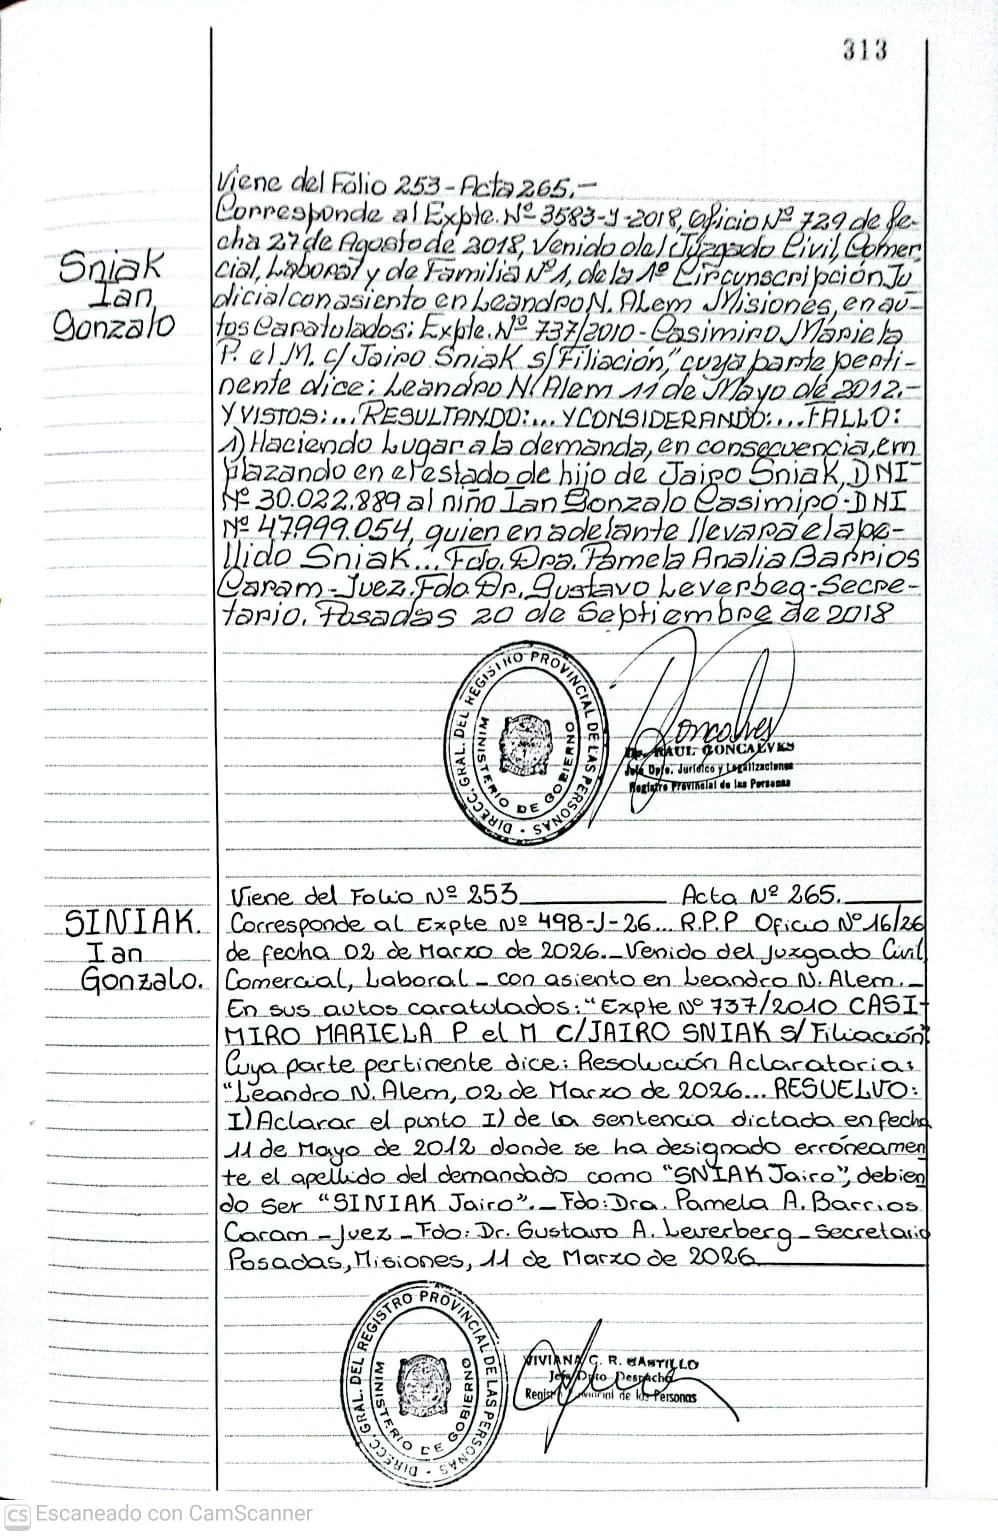 313
Viene del Folio 253 - Acta 265.-
Sniak
Ian
Gonzalo
Corresponde al Expte. Nº 3583-J-2018, Oficio Nº 729 de fe-
cha 27 de Agosto de 2018, Venido del Juzgado Civil, Comer,
cial, Laboral y de Familia Nº1, de la 1º Circunscripción Ju
dicial con asiento en Leandro N. Alem Misiones, en au-
tos Caratulados: Expte. Nº 737/2010 - Casimiro Mariela
P. el M. c/ Jairo Sniak s/Filiación," cuya parte perti-
nente dice: Leandro N. Alem 11 de Mayo de 2012.-
Y VISTOS:... RESULTANDO:... Y CONSIDERANDO:... FALLO:
1) Haciendo Lugar a la demanda, en consecuencia, em
plazando en el estado de hijo de Jairo Sniak, DNI-
Nº 30.022.889 al niño Ian Gonzalo Casimiro - DNI
Nº 47999.054, quien en adelante llevara el ape-
llido Sniak... Fdo. Dra. Pamela Analia Barrios
Caram - Juez. Fdo. Dr. Gustavo Leverbeg - Secre-
tario. Posadas 20 de Septiembre de 2018
DIRECC. GRAL. DEL REGISTRO PROVINCIAL DE LAS PERSONAS
MINISTERIO DE GOBIERNO
Goncalves
Dr. RAUL GONCALVES
Jefe Dpto. Jurídico y Legalizaciones
Registro Provincial de las Personas
Viene del Folio Nº 253 Acta Nº 265.
SINIAK.
Ian
Gonzalo.
Corresponde al Expte Nº 498-J-26... R.P.P Oficio Nº 16/26
de fecha 02 de Marzo de 2026._ Venido del Juzgado Civil
Comercial, Laboral _ con asiento en Leandro N. Alem._
En sus autos caratulados: "Expte Nº 737/2010 CASI-
MIRO MARIELA P el M C/JAIRO SNIAK s/Filiación"
Cuya parte pertinente dice: Resolución Aclaratoria:
"Leandro N. Alem, 02 de Marzo de 2026... RESUELVO:
I) Aclarar el punto I) de la sentencia dictada en fecha
11 de Mayo de 2012 donde se ha designado erróneamen
te el apellido del demandado como "SNIAK Jairo", debien
do ser "SINIAK Jairo"._ Fdo: Dra. Pamela A. Barrios
Caram _ Juez _ Fdo: Dr. Gustavo A. Leverberg _ Secretario
Posadas, Misiones, 11 de Marzo de 2026
DIRECC. GRAL. DEL REGISTRO PROVINCIAL DE LAS PERSONAS
MINISTERIO DE GOBIERNO
VIVIANA C. R. CASTILLO
Jefe Dpto Despacho
Registro Provincial de las Personas
CS Escaneado con CamScanner